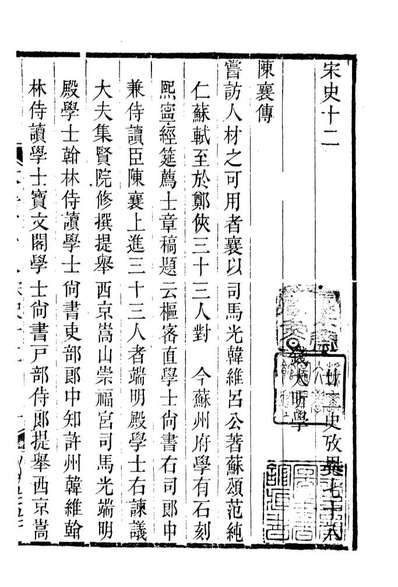 廿二史攷異卷七十八
錢大昕學
宋史十二
陳襄傳
嘗訪人材之可用者襄以司馬光韓維呂公著蘇頌范純
仁蘇軾至於鄭俠三十三人對　今蘇州府學有石刻
熙寧經筵薦士章稿題云樞密直學士尚書右司郎中
兼侍讀臣陳襄上進三十三人者端明殿學士右諫議
大夫集賢院修撰提舉西京嵩山崇福宮司馬光端明
殿學士翰林侍讀學士尚書吏部郎中知許州韓維翰
林侍讀學士寶文閣學士尚書戶部侍郎提舉西京嵩